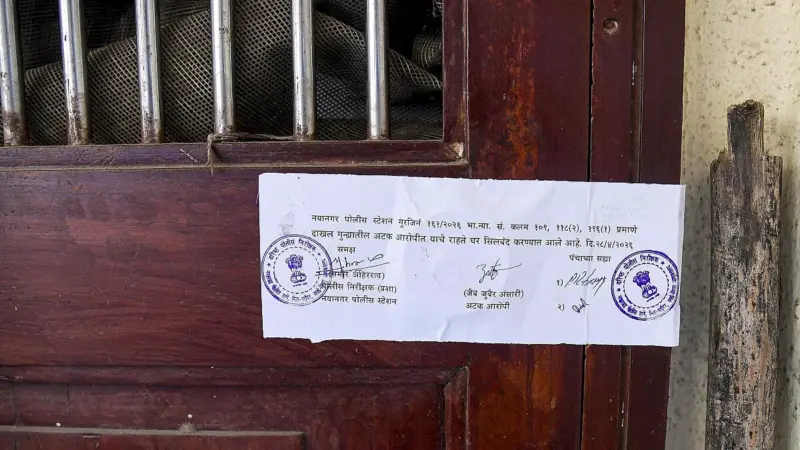 नयानगर पोलीस स्टेशन गुरजिनं १६१/२०२६ भा.न्या. सं. कलम १०९, ११८(२), ११६(१) प्रमाणे
दाखल गुन्ह्यातील अटक आरोपीत याचे राहते घर सिलबंद करण्यात आले आहे. दि.२८/४/२०२६
समक्ष
पंचाच्या सह्या
अहिरराव)
पोलीस निरीक्षक (प्रशा)
नयानगर पोलीस स्टेशन
(जैब जुबेर अंसारी)
अटक आरोपी
१)
२)